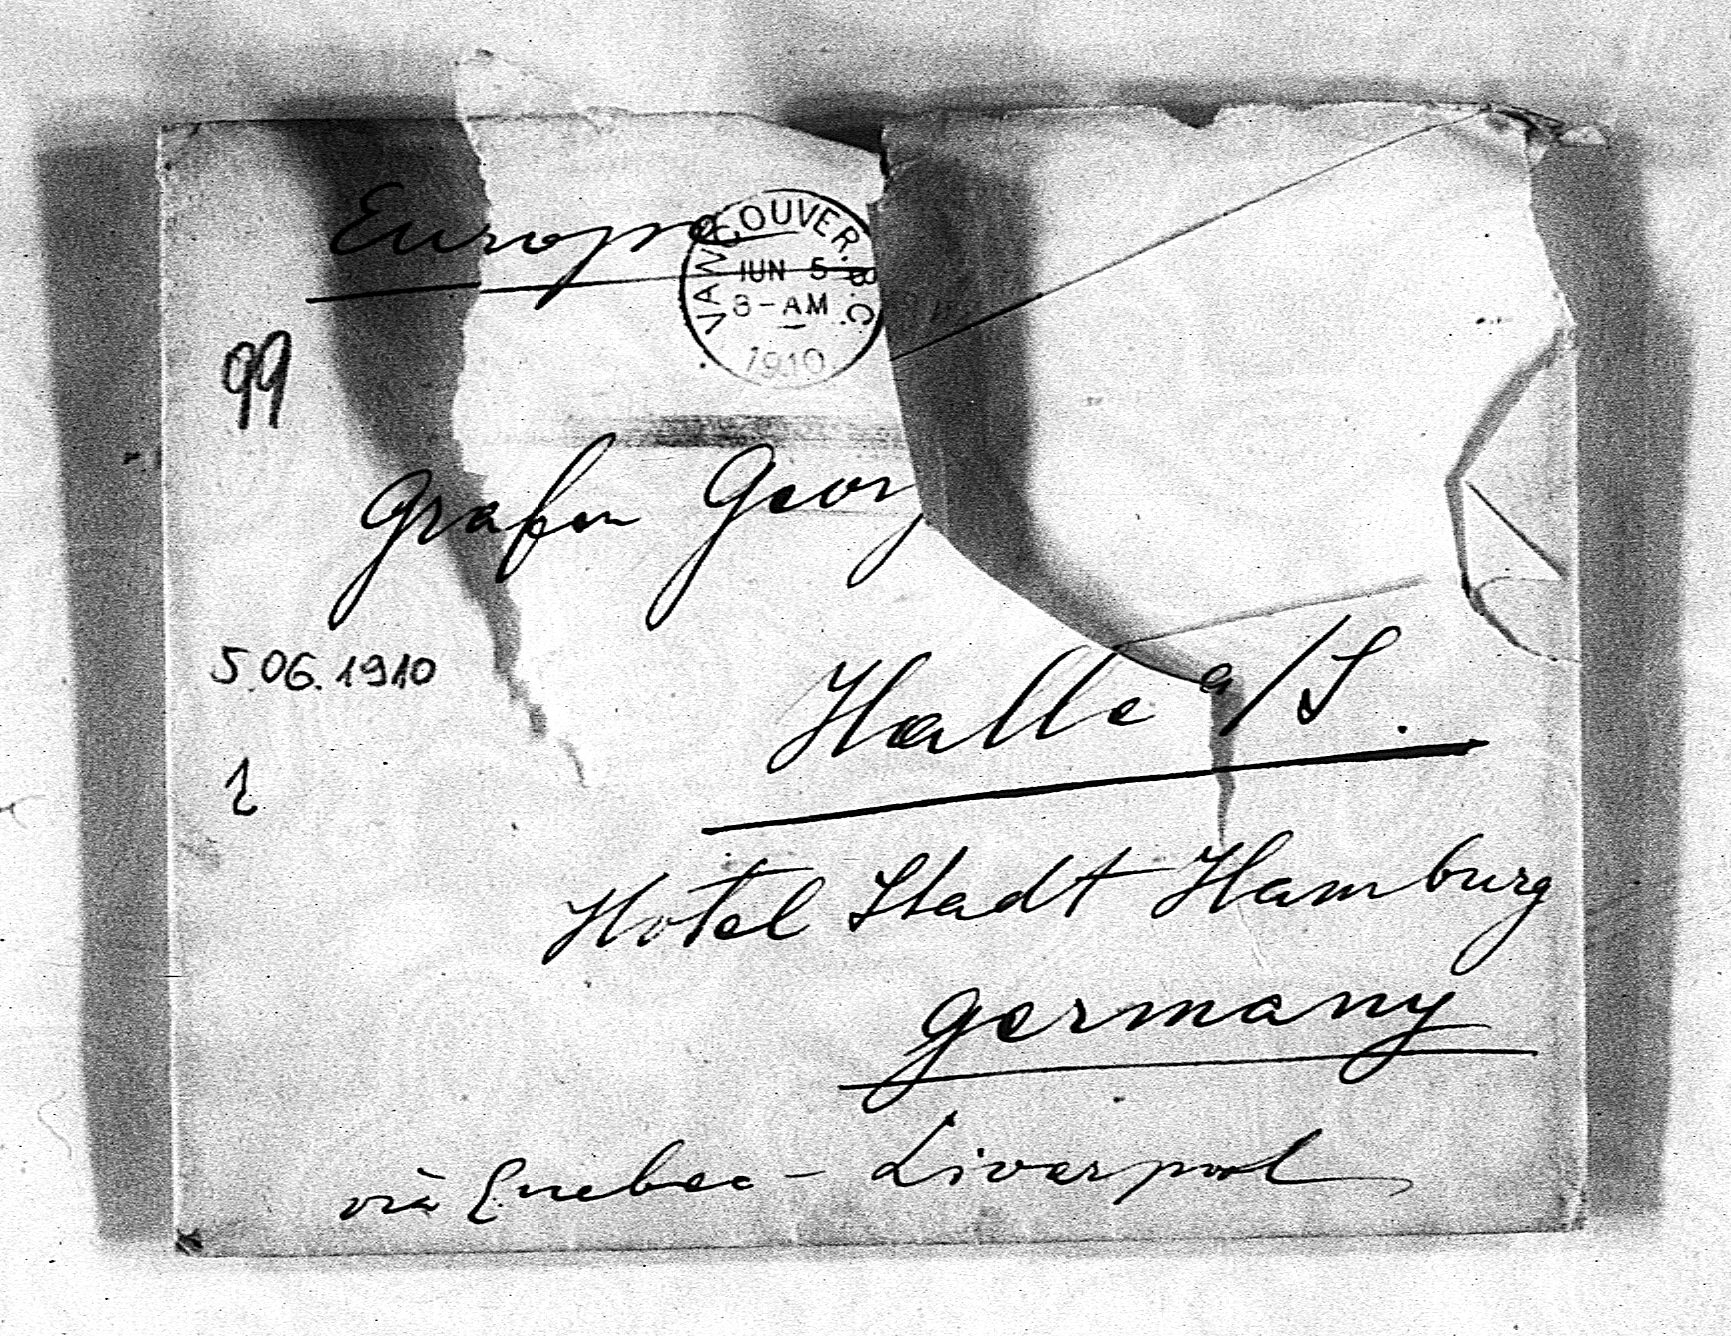 Europa
VANCOUVER. B.C.
JUN 5
8-AM
1910
99
Grafen Georg
5.06.1910
Halle a/S.
Hotel Stadt Hamburg
Germany
via Quebec - Liverpool